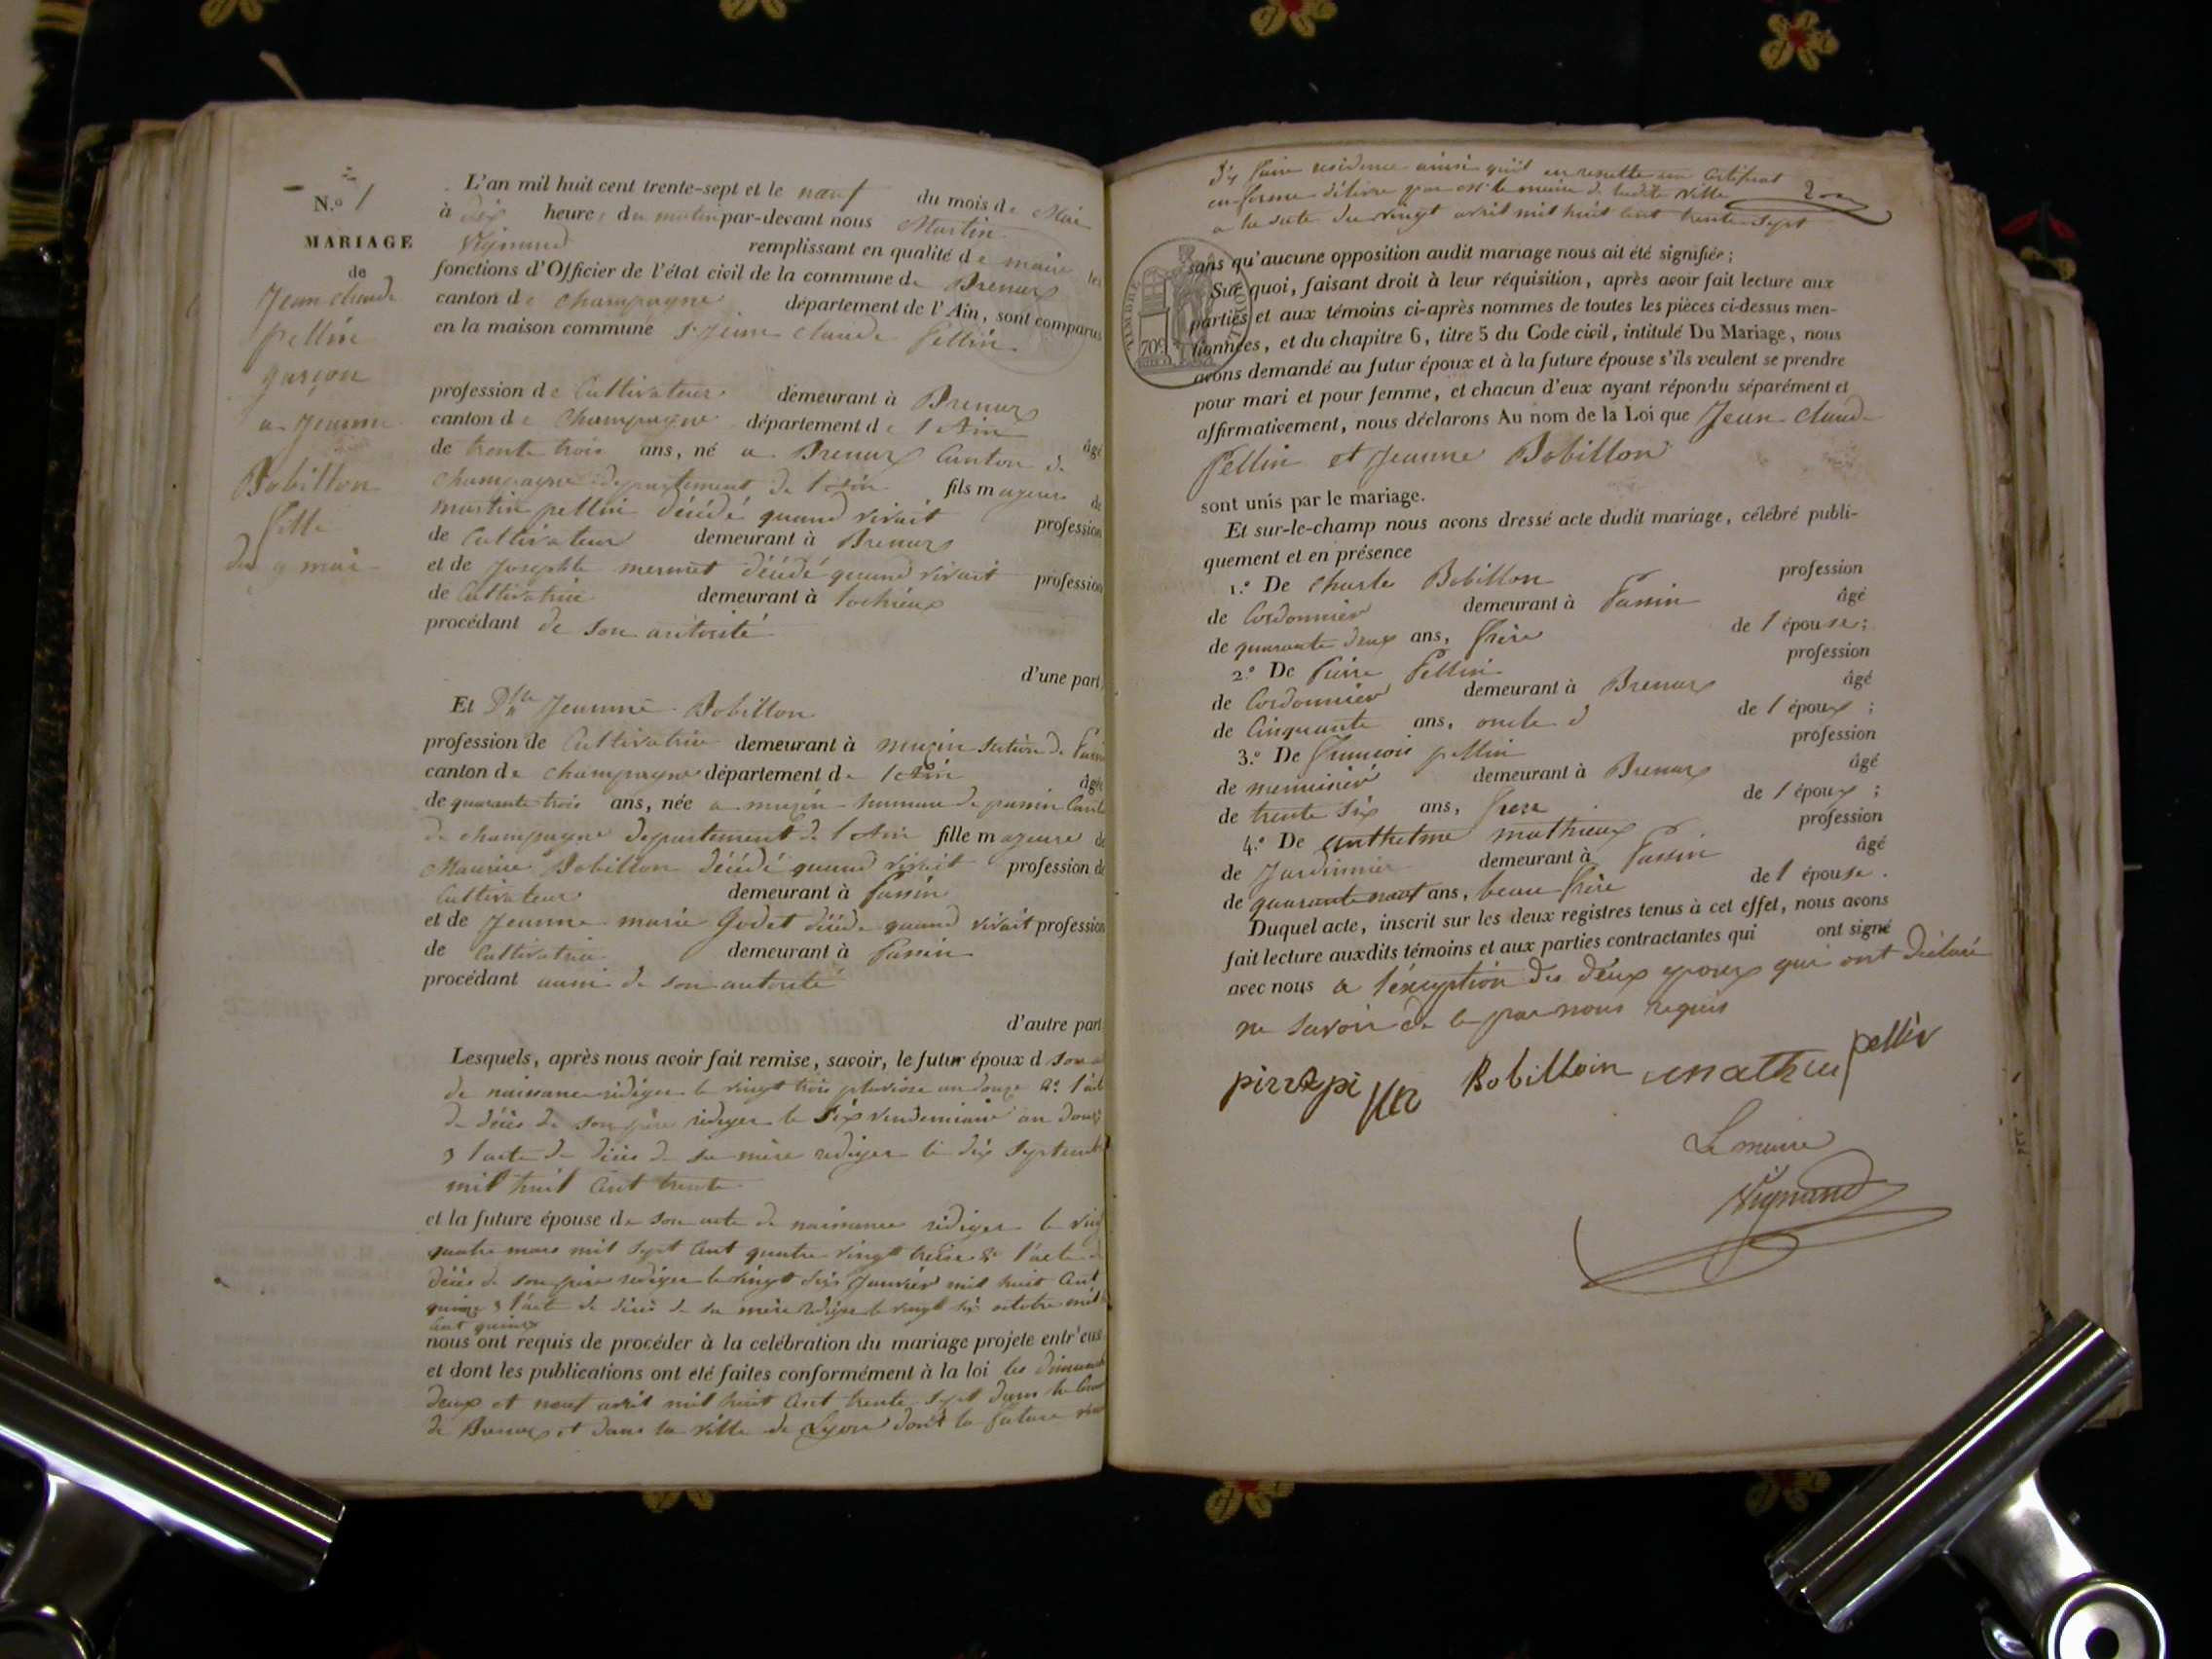 N.º 1
MARIAGE
de
Jean claude
pellin
garçon
a Jeanne
Bobillon
fille
du 9 mai
L'an mil huit cent trente-sept et le neuf du mois de Mai
à dix heures du matin par-devant nous Martin
Vignand remplissant en qualité de maire les
fonctions d'Officier de l'état civil de la commune de Brenaz
canton de Champagne département de l'Ain, sont comparus
en la maison commune Sr Jean claude Pellin
profession de Cultivateur demeurant à Brenaz
canton de Champagne département de l'Ain âgé
de trente trois ans, né a Brenaz Canton de
Champagne departement de l'ain fils majeur de
martin pellin décédé quand vivait profession
de Cultivateur demeurant à Brenaz
et de Josephte mermet décédé quand vivait profession
de Cultivatrice demeurant à lochieux
procédant de son autorité
d'une part,
Et Dlle Jeanne Bobillon
profession de Cultivatrice demeurant à muzin section de
canton de champagne département de l'Ain âgée
de quarante trois ans, née a muzin de passin
de champagne departement de l'Ain fille majeure de
Maurice Bobillon décédé quand vivait profession de
Cultivateur demeurant à Passin
et de Jeanne marie Godet décédé quand vivait profession
de Cultivatrice demeurant à Passin
procédant aussi de son autorité
d'autre part
Lesquels, après nous avoir fait remise, savoir, le futur époux d son
de naissance rediger le vingt trois pluviose an douze 2º l'act
de décès de son père rediger le six vendemiaire an douze
3 l'acte de décès de sa mère rediger le dix Septemb
mil huit Cent trente
et la future épouse de son acte de naissance rediger le
quatre mars mil sept Cent quatre vingt treize 2º l'acte
décès de son père rediger le vingt six Janvier mil huit Cent
quinze 3 l'act de décès de sa mère rediger le vingt six octobre mil
Cent quinze
nous ont requis de procéder à la celébration du mariage projeté entr'eux
et dont les publications ont été faites conformément à la loi les dimanch
deux et neuf avril mil huit Cent trente sept dans la
de Brenaz et dans la ville de Lyon dont la future
d'y faire residence ainsi qu'il en resulte un Certificat
en forme délivré par Mr le maire de ladite Ville
a la date du vingt avril mil huit Cent trente sept
TIMBRE ROYAL
70c
sans qu'aucune opposition audit mariage nous ait été signifiée ;
Sur quoi, faisant droit à leur réquisition, après avoir fait lecture aux
parties et aux témoins ci-après nommes de toutes les pièces ci-dessus men-
tionnées, et du chapitre 6, titre 5 du Code civil, intitulé Du Mariage, nous
avons demandé au futur époux et à la future épouse s'ils veulent se prendre
pour mari et pour femme, et chacun d'eux ayant répondu séparément et
affirmativement, nous déclarons Au nom de la Loi que Jean Claude
Pellin et Jeanne Bobillon
sont unis par le mariage.
Et sur-le-champ nous avons dressé acte dudit mariage, célébré publi-
quement et en présence
1.º De Charles Bobillon profession
de Cordonnier demeurant à Passin âgé
de quarante deux ans, frère de l'épouse ;
2.º De Pierre Pellin profession
de Cordonnier demeurant à Brenaz âgé
de Cinquante ans, oncle d de l'époux ;
3.º De François pellin profession
de menuisier demeurant à Brenaz âgé
de trente six ans, frere de l'époux ;
4.º De anthelme mathieux profession
de Jardinnier demeurant à Passin âgé
de quarante neuf ans, beau frère de l'épouse.
Duquel acte, inscrit sur les deux registres tenus à cet effet, nous avons
fait lecture auxdits témoins et aux parties contractantes qui ont signé
avec nous a l'exception des deux epoux qui ont déclaré
ne savoir de ce par nous requis
Bobillon mathieu pellin
Le maire
Vignand